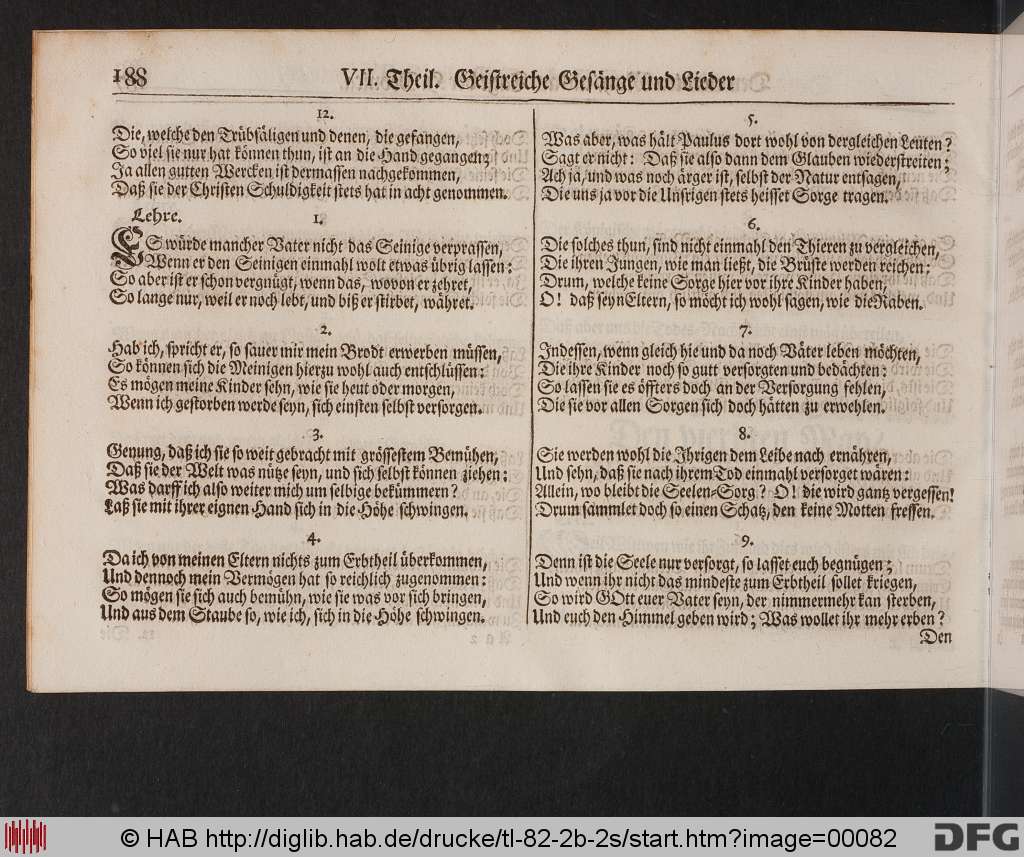 188
VII. Theil. Geistreiche Gesänge und Lieder
12.
Die, welche den Trübsäligen und denen, die gefangen,
So viel sie nur hat können thun, ist an die Hand gegangen;
Ja allen gutten Wercken ist dermassen nachgekommen,
Daß sie der Christen Schuldigkeit stets hat in acht genommen.
Lehre. 1.
ES würde mancher Vater nicht das Seinige verprassen,
Wenn er den Seinigen einmahl wolt etwas übrig lassen:
So aber ist er schon vergnügt, wenn das, wovon er zehret,
So lange nur, weil er noch lebt, und biß er stirbet, währet.
2.
Hab ich, spricht er, so sauer mir mein Brodt erwerben müssen,
So können sich die Meinigen hierzu wohl auch entschlüssen:
Es mögen meine Kinder sehn, wie sie heut oder morgen,
Wenn ich gestorben werde seyn, sich einsten selbst versorgen.
3.
Genung, daß ich sie so weit gebracht mit grössestem Bemühen,
Daß sie der Welt was nütze seyn, und sich selbst können ziehen:
Was darff ich also weiter mich um selbige bekümmern?
Laß sie mit ihrer eignen Hand sich in die Höhe schwingen.
4.
Da ich von meinen Eltern nichts zum Erbtheil überkommen,
Und dennoch mein Vermögen hat so reichlich zugenommen:
So mögen sie sich auch bemühn, wie sie was vor sich bringen,
Und aus dem Staube so, wie ich, sich in die Höhe schwingen.
5.
Was aber, was hält Paulus dort wohl von dergleichen Leuten?
Sagt er nicht: Daß sie also dann dem Glauben wiederstreiten;
Ach ja, und was noch ärger ist, selbst der Natur entsagen,
Die uns ja vor die Unsrigen stets heisset Sorge tragen.
6.
Die solches thun, sind nicht einmahl den Thieren zu vergleichen,
Die ihren Jungen, wie man ließt, die Brüste werden reichen:
Drum, welche keine Sorge hier vor ihre Kinder haben,
O! daß seyn Eltern, so möcht ich wohl sagen, wie die Raben.
7.
Indessen, wenn gleich hie und da noch Väter leben möchten,
Die ihre Kinder noch so gutt versorgten und bedächten:
So lassen sie es öffters doch an der Versorgung fehlen,
Die sie vor allen Sorgen sich doch hätten zu erwehlen.
8.
Sie werden wohl die Ihrigen dem Leibe nach ernähren,
Und sehn, daß sie nach ihrem Tod einmahl versorget wären:
Allein, wo bleibt die Seelen-Sorg? O! die wird gantz vergessen!
Drum sammlet doch so einen Schatz, den keine Motten fressen.
9.
Denn ist die Seele nur versorgt, so lasset euch begnügen;
Und wenn ihr nicht das mindeste zum Erbtheil sollet kriegen,
So wird GOtt euer Vater seyn, der nimmermehr kan sterben,
Und euch den Himmel geben wird; Was wollet ihr mehr erben?
Den
© HAB http://diglib.hab.de/drucke/tl-82-2b-2s/start.htm?image=00082
DFG